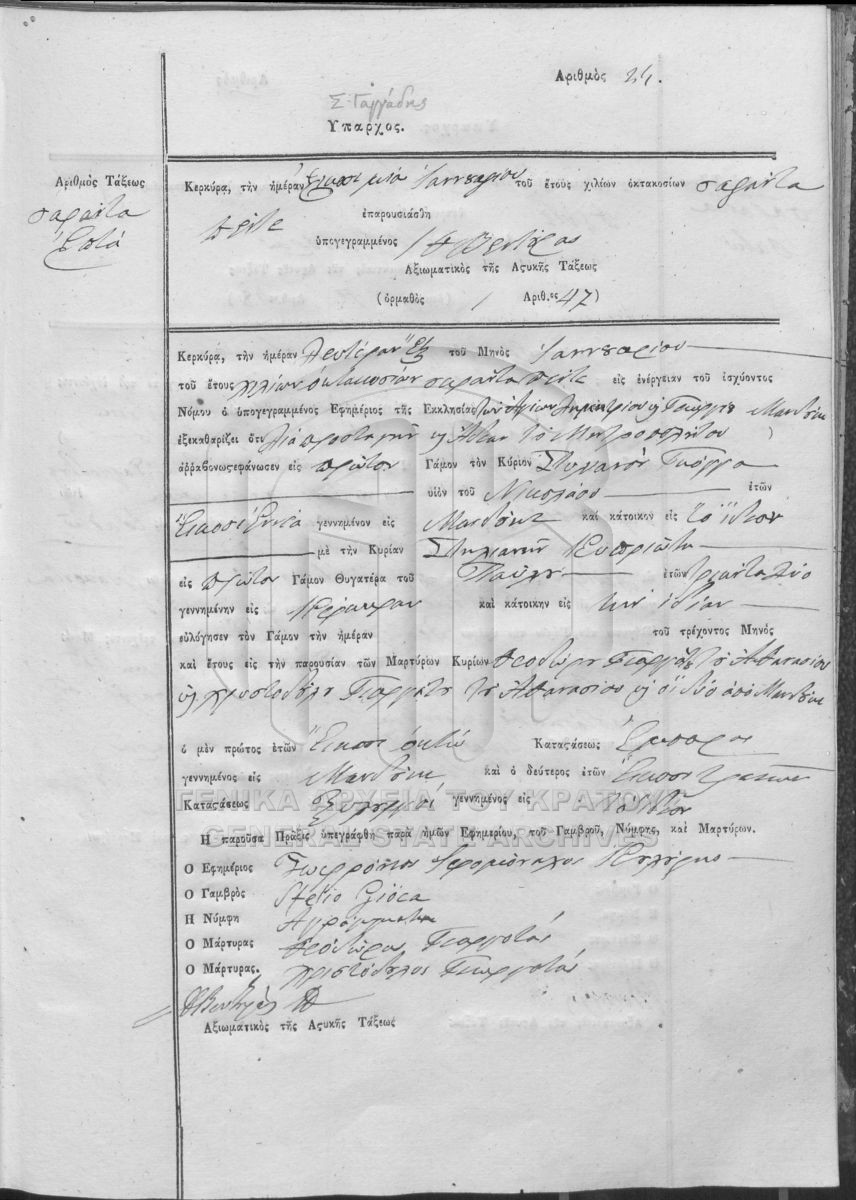 Αριθμὸς 24.
Σ. Γαγγάδης
Ὕπαρχος.
Αριθμὸς Τάξεως
σαράντα
ἑπτά
Κερκύρα, τὴν ἡμέραν εἴκοσι μιά Ἰαννουαρίου τοῦ ἔτους χιλίων ὀκτακοσίων σαράντα
πέντε ἐπαρουσιάσθη
ὑπογεγραμμένος
Ἀξιωματικὸς τῆς Αςυκῆς Τάξεως
(ὁρμαθὸς / Αριθ.ος 47)
Κερκύρᾳ, τὴν ἡμέραν Δευτέραν ἕξ τοῦ Μηνὸς Ἰαννουαρίου
τοῦ ἔτους χιλίων ὀκτακοσίων σαράντα πέντε εἰς ἐνέργειαν τοῦ ἰσχύοντος
Νόμου ὁ ὑπογεγραμμένος Εφημέριος τῆς Εκκλησίας τῶν Ἁγίων Δημητρίου καὶ Γεωργίου Μαντούκι
ἐξεκαθαρίζει ὅτι διὰ προσταγῆς τοῦ Μητροπολίτου
ἀῤῥαβωνοςεφάνωσεν εἰς πρῶτον Γάμον τὸν Κύριον Στυλιανὸν Γκιόργα
υἱὸν τοῦ Νικολάου ἐτῶν
εἴκοσι ἐννέα γεννημένον εἰς Μαντούκι καὶ κάτοικον εἰς τὸ ἴδιον
μὲ τὴν Κυρίαν Στυλιανὴν Κυπριώτη
εἰς πρῶτον Γάμον Θυγατέρα τοῦ Παύλου ἐτῶν τριάντα δύο
γεννημένην εἰς Κέρκυραν καὶ κάτοικην εἰς τὴν ἰδίαν
εὐλόγησεν τὸν Γάμον τὴν ἡμέραν τοῦ τρέχοντος Μηνὸς
καὶ ἔτους εἰς τὴν παρουσίαν τῶν Μαρτύρων Κυρίων Θεοδώρου Γεωργάτου τοῦ Ἀθανασίου
καὶ Χριστοδούλου Γεωργάτου τοῦ Ἀθανασίου καὶ οἱ δύο ἀπὸ Μαντούκι
ὁ μὲν πρῶτος ἐτῶν εἴκοσι ὀκτώ Καταςάσεως ἔμπορος
γεννημένος εἰς Μαντούκι καὶ ὁ δεύτερος ἐτῶν εἴκοσι
Καταςάσεως γεννημένος εἰς τὸ ἴδιον
ΓΕΝΙΚΑ ΑΡΧΕΙΑ ΤΟΥ ΚΡΑΤΟΥΣ
GENERAL STATE ARCHIVES
Ἡ παροῦσα Πράξις ὑπεγράφθη παρὰ ἡμῶν Εφημερίου, τοῦ Γαμβροῦ, Νύμφης, καὶ Μαρτύρων.
Ο Εφημέριος Σωφρόνιος Ἱερομόναχος
Ο Γαμβρὸς Stelio
Η Νύμφη Ἀγράμματη
Ο Μάρτυρας Θεόδωρος Γεωργάτος
Ο Μάρτυρας. Χριστόδουλος Γεωργάτος
Αξιωματικὸς τῆς Αςυκῆς Τάξεως